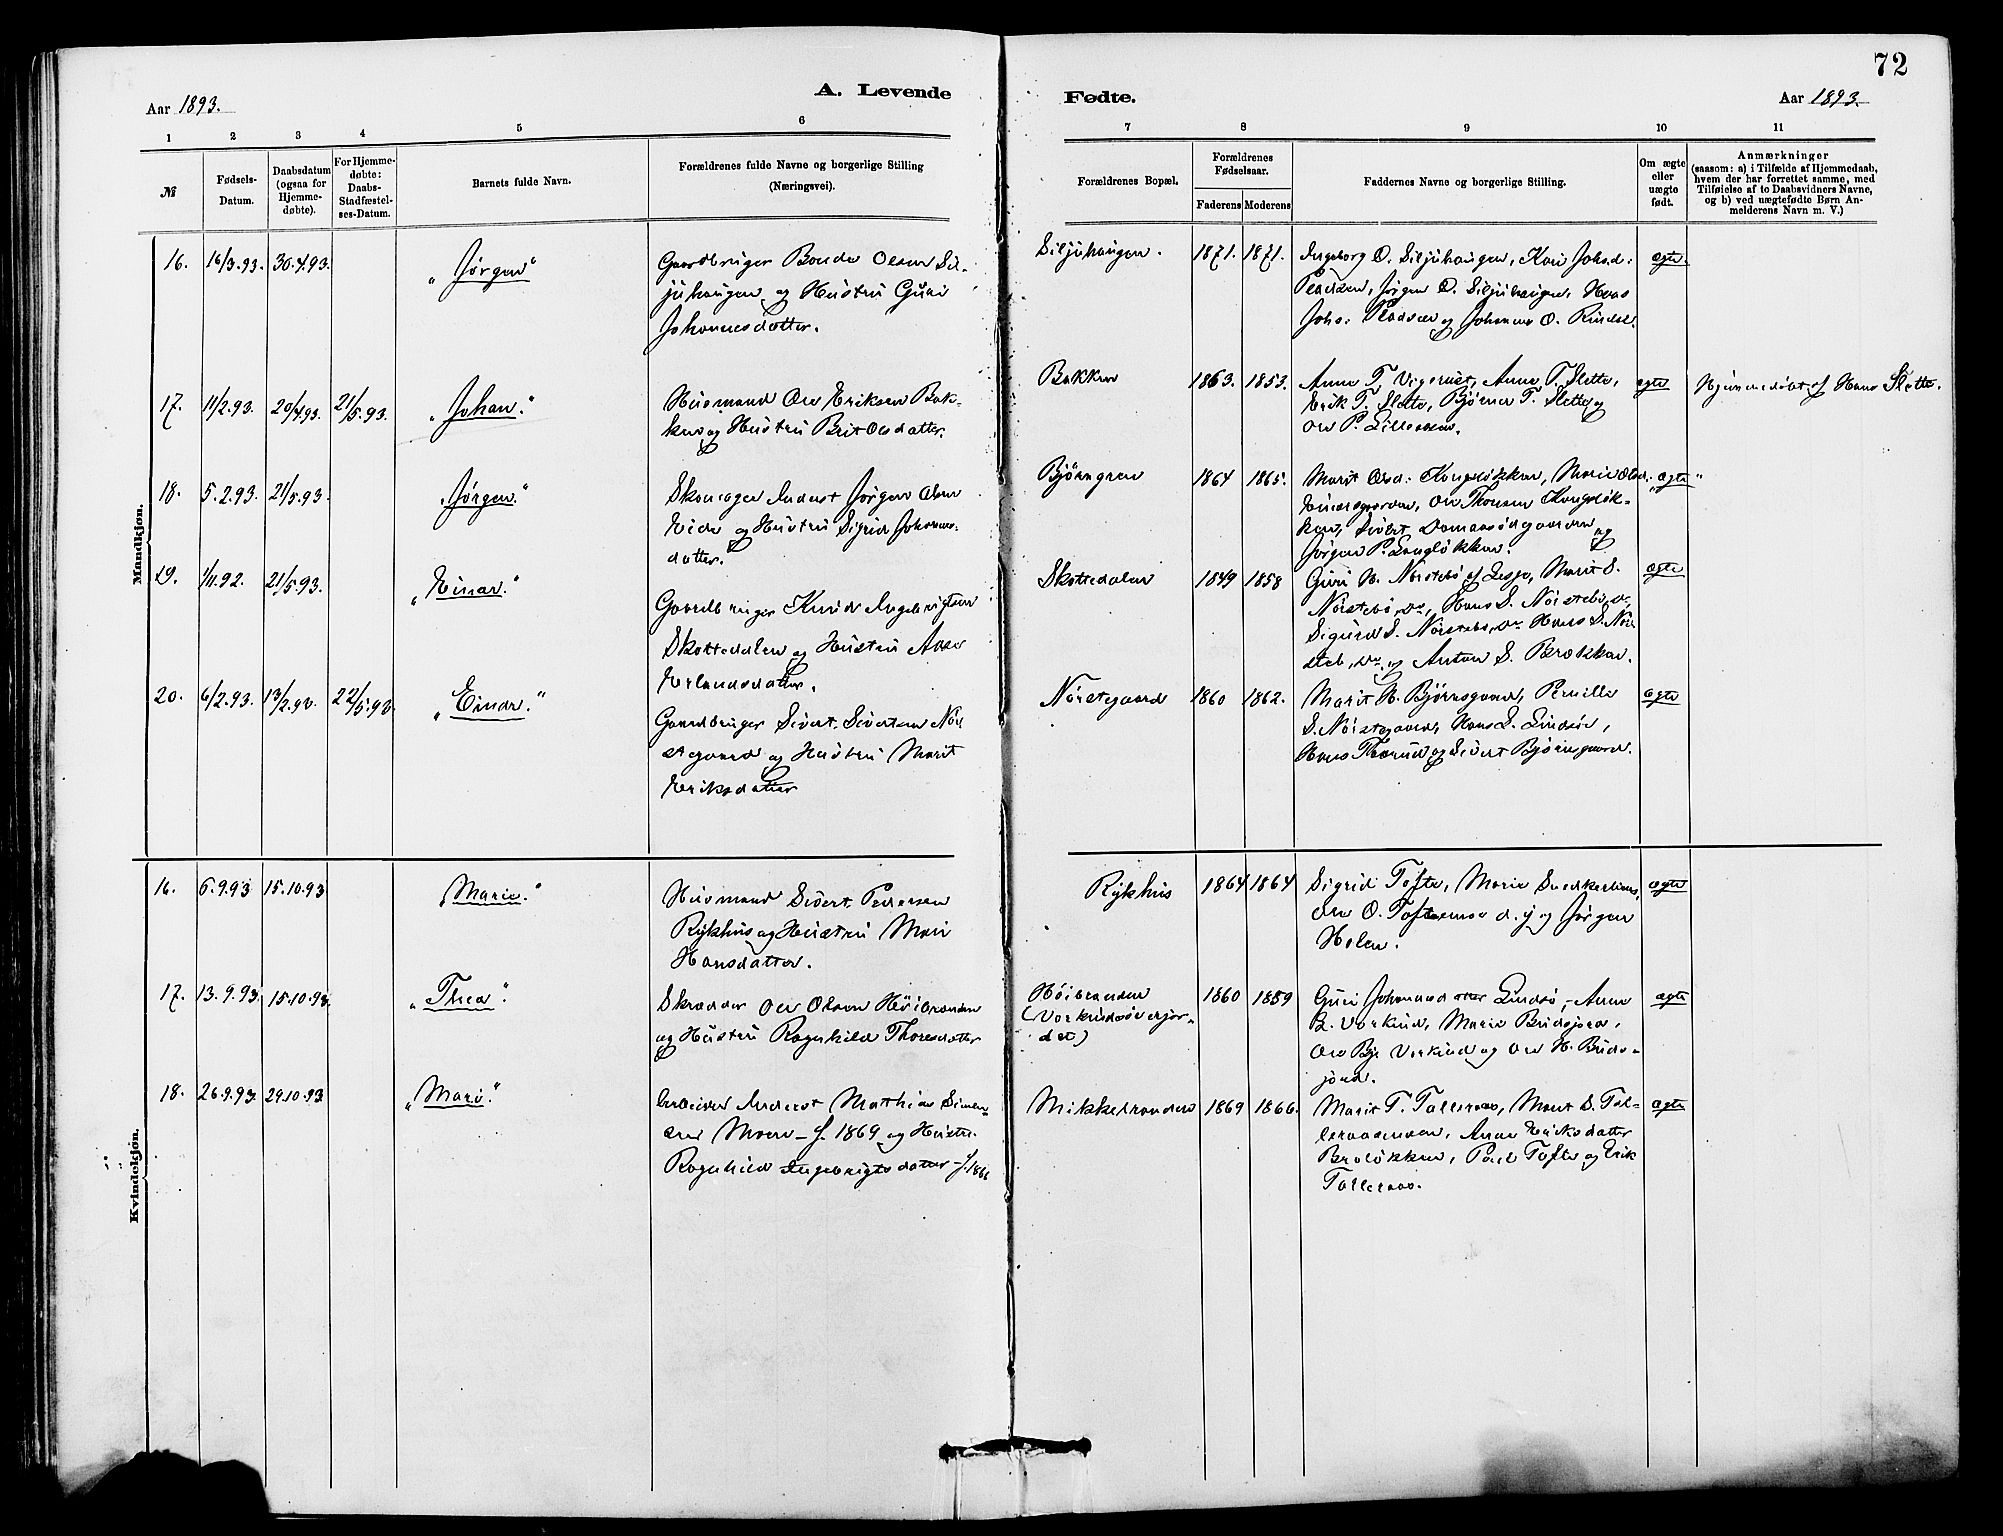 72
Aar 1893.
A. Levende
Fødte.
Aar 1893.
1 2 3 4 5 6
7 8 9 10 11
№
Fødsels-
Datum.
Daabsdatum
(ogsaa for
Hjemme-
døbte).
For Hjemme-
døbte:
Daabs-
Stadfæstel-
ses-Datum.
Barnets fulde Navn.
Forældrenes fulde Navne og borgerlige Stilling
(Næringsvei).
Forældrenes Bopæl.
Forældrenes
Fødselsaar.
Faderens Moderens
Faddernes Navne og borgerlige Stilling.
Om ægte
eller
uægte
født.
Anmærkninger
(saasom: a) i Tilfælde af Hjemmedaab,
hvem der har forrettet samme, med
Tilføielse af to Daabsvidners Navne,
og b) ved uægtefødte Børn An-
melderens Navn m. V.)
Mandkjøn.
16. 16/3.93. 30.4.93.
"Jørgen"
Gaardbruger Bonde Olsen Sil-
juhaugen og Hustru Guri
Johannesdatter.
Siljuhaugen. 1871. 1871.
Ingeborg O. Siljuhaugen, Kari Johsd:
Pladsen, Jørgen O. Siljuhaugen, Hans
Johs. Pladsen og Johannes O. Rindal.
ægte.
17. 11/2.93. 20/4.93. 21/5.93.
"Johan."
Husmand Ole Eriksen Bak-
ken og Hustru Brit Olsdatter.
Bakken 1863. 1853.
Anna T. Vigerust, Anne T. Slette,
Erik T. Slette, Bjørner T. Slette og
Ole P.
ægte
Hjemmedøbt af Hans Slette.
18. 5.2.93. 21/5.93.
"Jørgen"
Skomager Anderst Jørgen Olsen
Eide og Hustru Sigrid Johannes-
datter.
Bjørngren 1864 1865.
Marit Olsd: Kongsløkken, Marie Olsd.
Einarsgaarden, Ole Thorsen Kongsløk-
ken, Sivert Domaasødegaarden og
Jørgen P. Langløkken.
"ægte"
19. 1/11.92. 21/5.93.
"Einar."
Gaardbruger Knud Ingebrigtsen
Skottedalen og Hustru Anne
Erlandsdatter.
Skottedalen 1849 1858
Guri H. Nørstebø af Lesje, Marit S.
Nørstebø, do, Hans S. Nørstebø, do,
Sigurd S. Nørstebø, do Hans S. Nør-
steb, do, og Anton S. Brækken.
ægte
20. 6/2.93. 13/2.93. 22/5.93.
"Einar."
Gaardbruger Sivert Sivertsen Nør-
stegaard og Hustru Marit
Eriksdatter
Nørstegaard 1860 1862.
Marit H. Bjørnsgaard, Pernille
S. Nørstegaard, Hans S. Lindsøe,
Hans Thorud og Sivert Bjørnsgaard.
ægte
Kvindekjøn.
16. 6.9.93 15.10.93
"Marie."
Husmand Sivert Pedersen
Rykhus og Hustru Mari
Hansdatter.
Rykhus 1864 1864
Sigrid Tofte, Marie
Ole O. Toftemoe d.y og Jørgen
Holen.
ægte
17. 13.9.93. 15.10.93.
"Thea".
Skrædder Ole Olsen Høibranden
og Hustru Ragnhild Thoresdatter
Høibranden
(Vorkindsøverjor-
det)
1860 1859
Guri Johannesdatter Lindsø, Anne
R. Vorkind, Marie Budsjord,
Ole Bj Vorkind og Ole H. Buds-
jord.
ægte
18. 26.9.93. 29.10.93
"Mari."
Arbeider Anderst Mathias Simen-
sen Moen – f. 1869 og Hustru
Ragnhild Ingebrigtsdatter – f. 1866
Mikkelsranden 1869 1866.
Marit T. Talleraas, Marit S. Tal-
leraasmoen, Anne Eriksdatter
Broløkken, Poul Tofte og Erik
Talleraas.
ægte